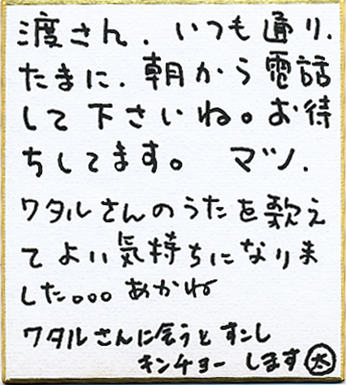 渡さん.いつも通り.
たまに.朝から電話
して下さいね。お待
ちしてます。 マツ.
ワタルさんのうたを歌え
てよい気持ちになりま
した。。。あかね
ワタルさんに会うと すこし
キンチョー します 太